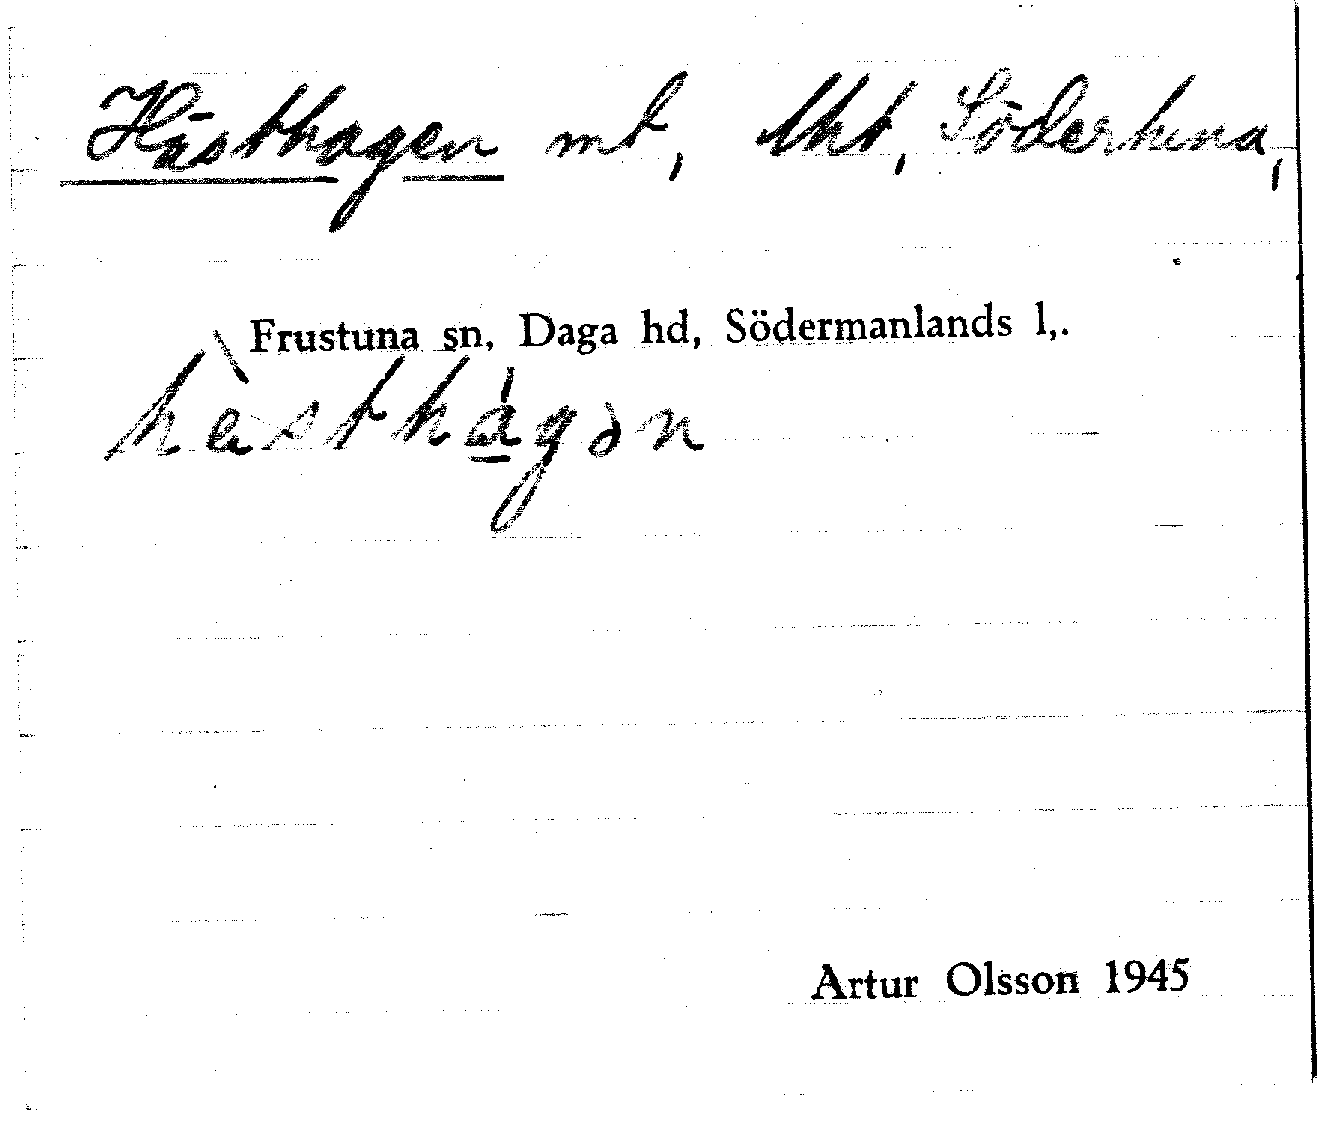 Hästhagen mt, Söderhuna,
Frustuna sn, Daga hd, Södermanlands l,.
hàsthágən
Artur Olsson 1945